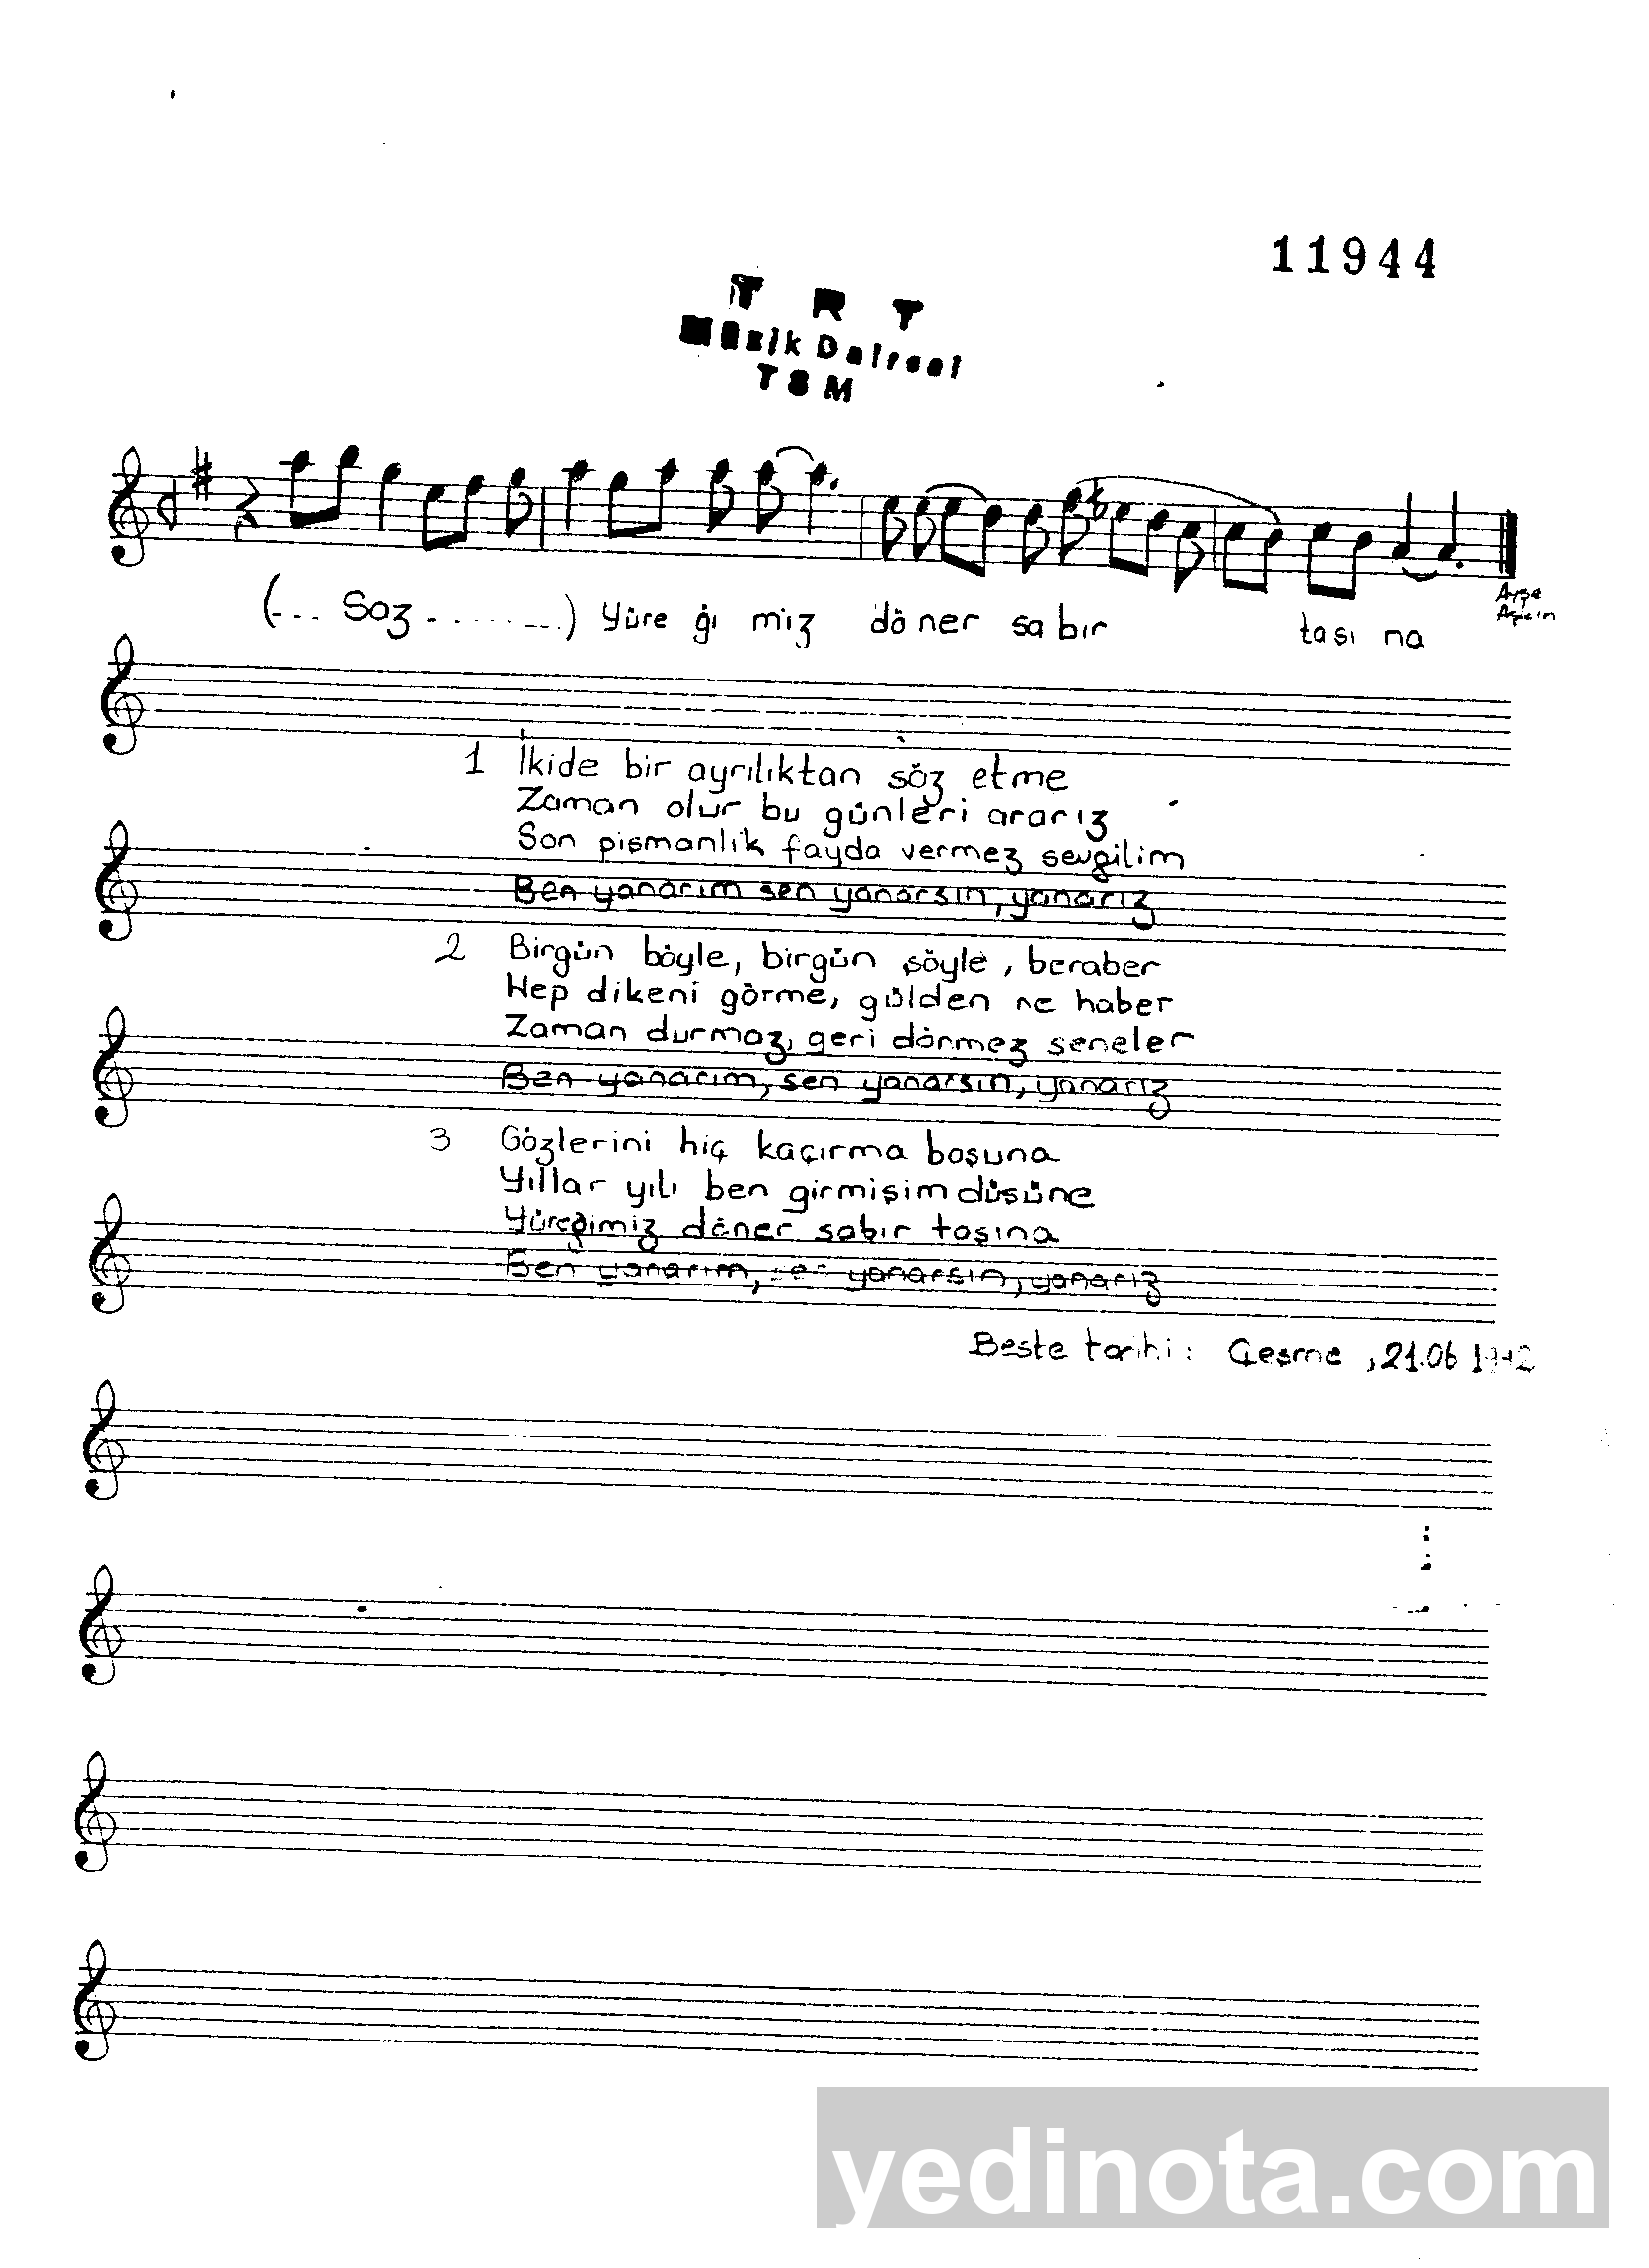 11944
TRT
Müzik Dairesi
TSM
(--- Saz ---------) Yüre ği miz döner sa bır taşı na
Ayşe
1 İkide bir ayrılıktan söz etme
Zaman olur bu günleri ararız
Son pişmanlık fayda vermez sevgilim
Ben yanarım sen yanarsın, yanarız
2 Birgün böyle, birgün şöyle, beraber
Hep dikeni görme, gülden ne haber
Zaman durmaz, geri dönmez seneler
Ben yanarım, sen yanarsın, yanarız
3 Gözlerini hiç kaçırma boşuna
Yıllar yılı ben girmişim düşüne
Yüreğimiz döner sabır taşına
Ben yanarım, sen yanarsın, yanarız
Beste tarihi: Çeşme, 21.06
yedinota.com